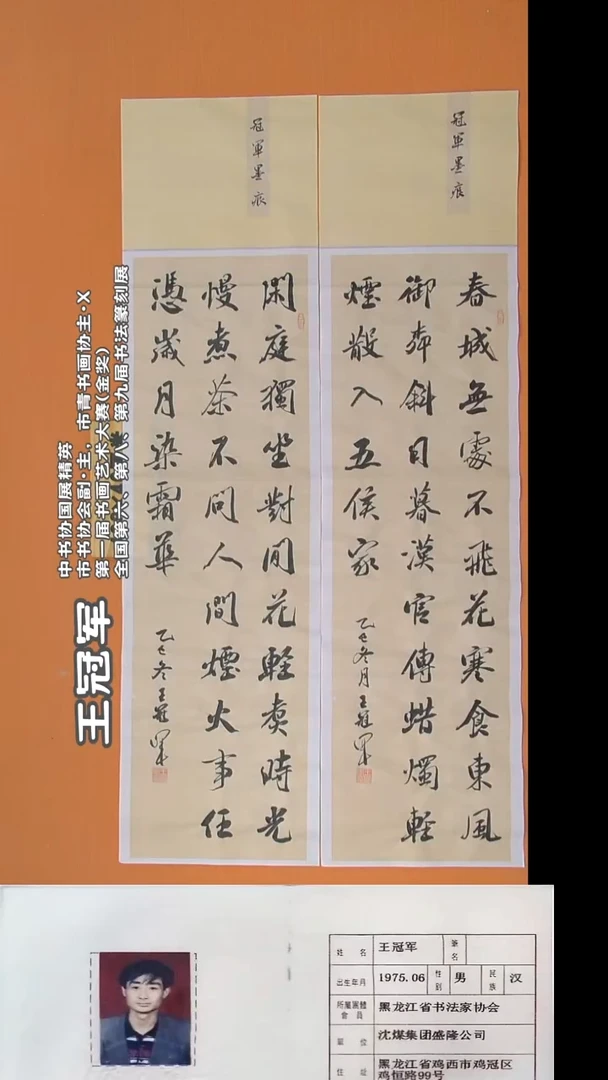 冠軍墨痕
春城無處不飛花寒食東風
御柳斜日暮漢宮傳蜡燭輕
煙散入五侯家
乙巳冬月王冠軍
冠軍墨痕
閑庭獨坐對閒花輕煮時光
慢煮茶不問人間煙火事任
憑歲月染霜華
乙巳冬王冠軍
王冠军
中书协国展精英
市书协会副·主，市青书画协主·X
第一届书画艺术大赛(金奖)
全国第六、第八、第九届书法篆刻展
姓名 王冠军 笔名
出生年月 1975.06 性别 男 民族 汉
所属团体会员 黑龙江省书法家协会
单位 沈煤集团盛隆公司
住址 黑龙江省鸡西市鸡冠区
鸡恒路99号